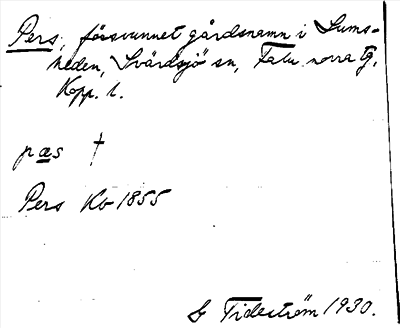 Pers, försvunnet gårdsnamn i Lums-
heden, Svärdsjö sn, Falu norra tg,
Kopp. l.
pæs †
Pers Kb 1855
G Tideström 1930.